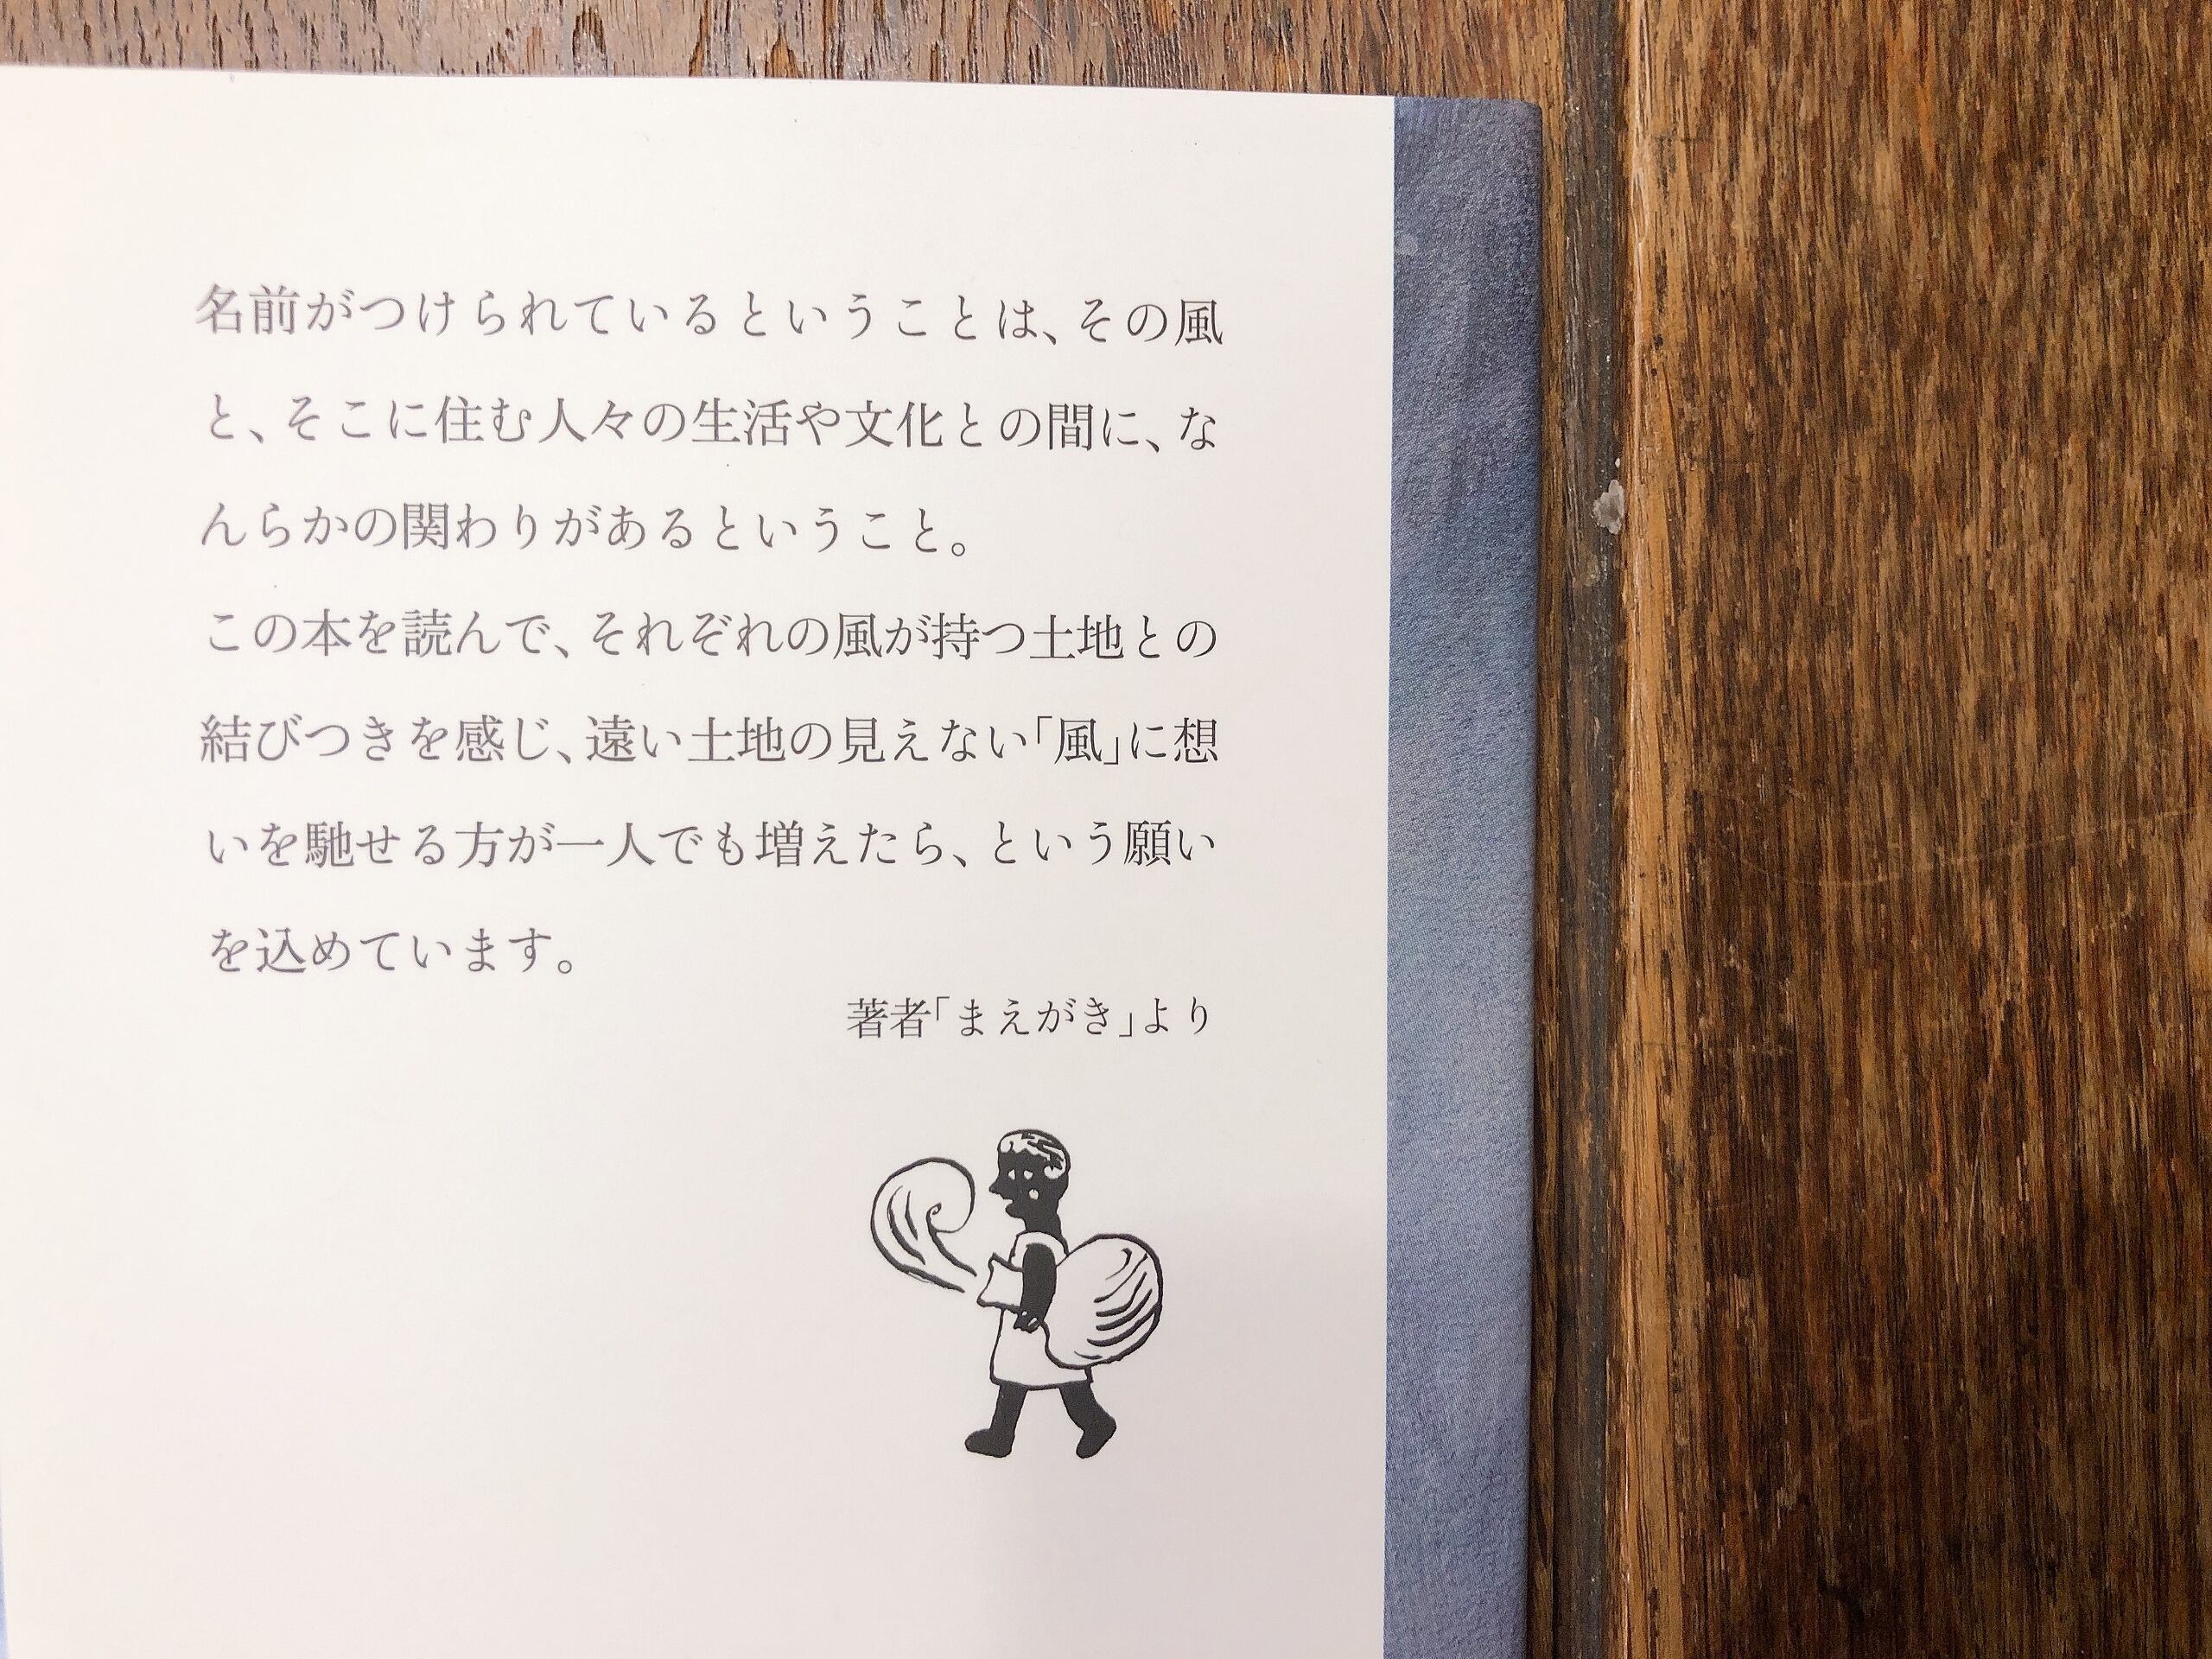 名前がつけられているということは、その風
と、そこに住む人々の生活や文化との間に、な
んらかの関わりがあるということ。
この本を読んで、それぞれの風が持つ土地との
結びつきを感じ、遠い土地の見えない「風」に想
いを馳せる方が一人でも増えたら、という願い
を込めています。
著者「まえがき」より